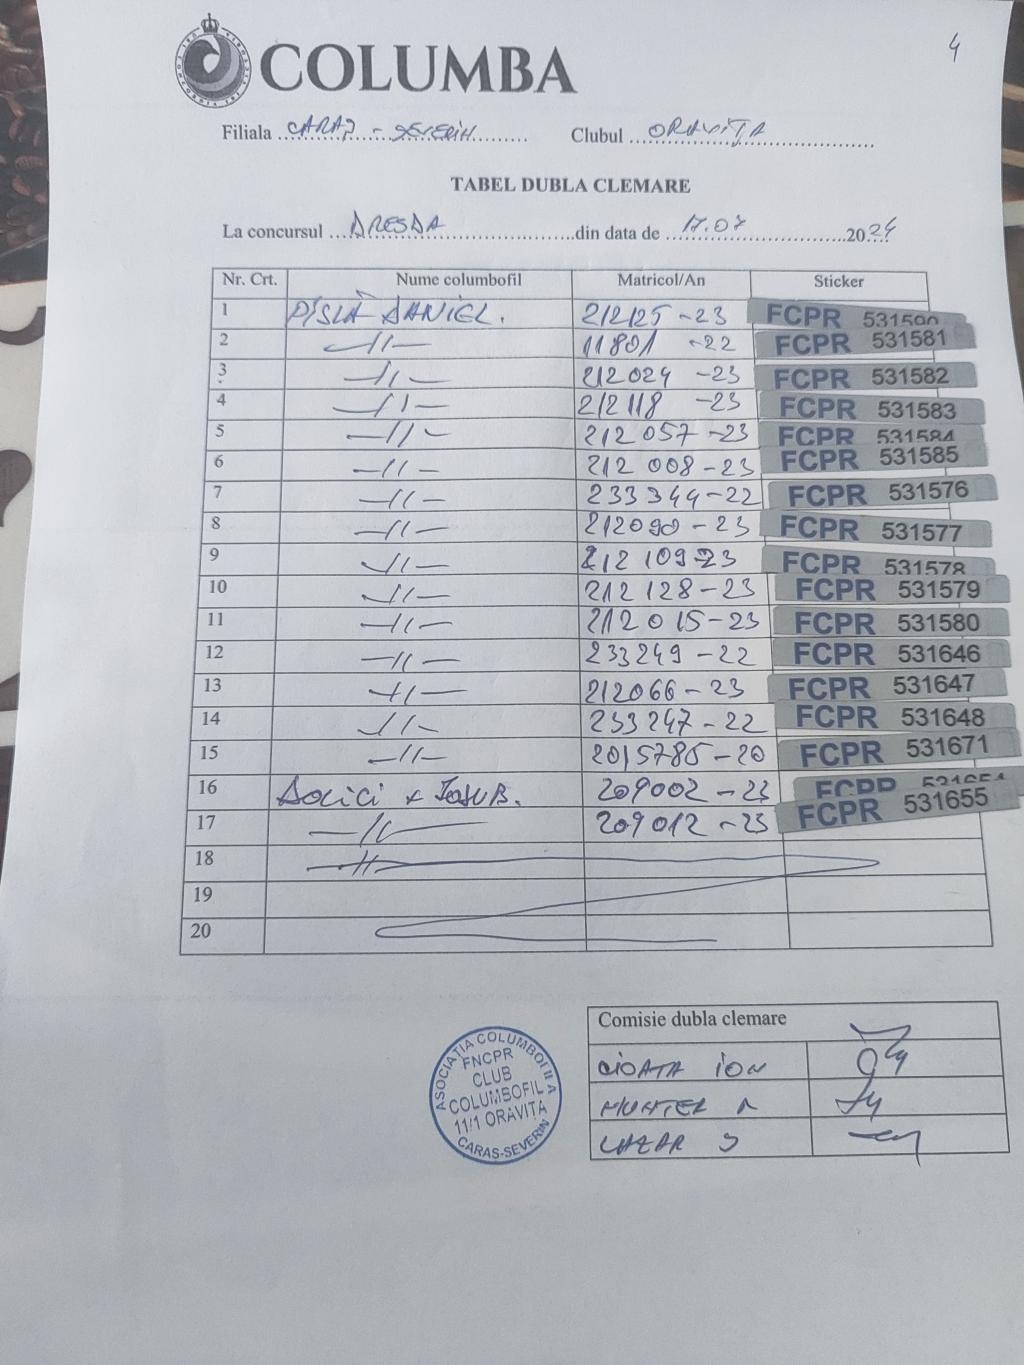 4
COLUMBA
Filiala CARAȘ - SEVERIN Clubul ORAVIȚA
TABEL DUBLA CLEMARE
La concursul DRESDA din data de 17.07 2024
Nr. Crt. Nume columbofil Matricol/An Sticker
1 PÎSLĂ DANIEL. 212125 -23 FCPR 531590
2 -11- 11801 -22 FCPR 531581
3 -11- 212024 -23 FCPR 531582
4 -11- 212118 -23 FCPR 531583
5 -11- 212057 -23 FCPR 531584
6 -11- 212008 -23 FCPR 531585
7 -11- 233344-22 FCPR 531576
8 -11- 212090 -23 FCPR 531577
9 -11- 212109-23 FCPR 531578
10 -11- 212128-23 FCPR 531579
11 -11- 212015-23 FCPR 531580
12 -11- 233249 -22 FCPR 531646
13 -11- 212066-23 FCPR 531647
14 -11- 233247-22 FCPR 531648
15 -11- 2015785-20 FCPR 531671
16 209002 -23 FCPR 531654
17 -11- 209012 -23 FCPR 531655
18 -11-
19
20
Comisie dubla clemare
CIOATA ION
MUNTEL
LAZAR
ASOCIAȚIA COLUMBOFILA
FNCPR
CLUB
COLUMBOFIL
11/1 ORAVIȚA
CARAS-SEVERIN